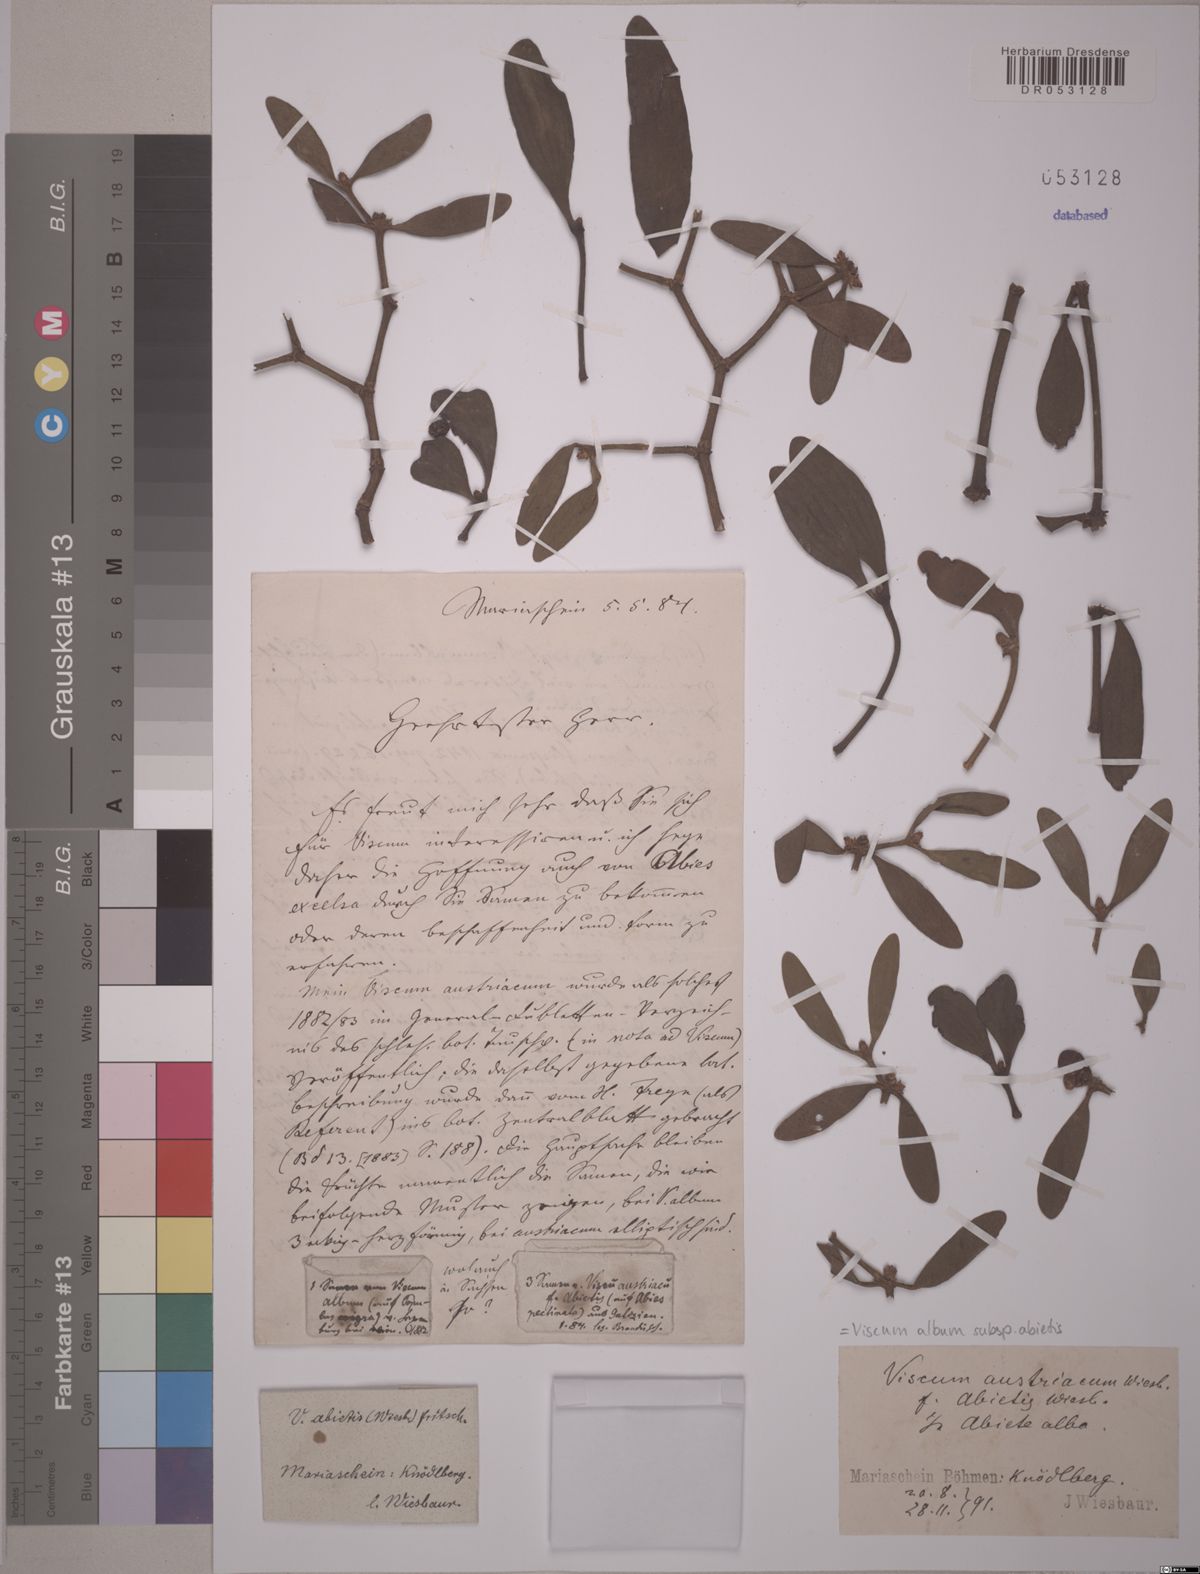 Herbarium Dresdense
DR053128
053128
databased
Mariaschein 5. 5. 84.
Geehrtester Herr.
Es freut mich sehr daß Sie sich
für Viscum interessiren u. ich hege
daher die Hoffnung auch von Abies
excelsa durch Sie Samen zu bekommen
oder deren Beschaffenheit und Form zu
erfahren.
Mein Viscum austriacum wurde als solches
1882/83 im General-Doubletten-Verzeich-
nis des schles. bot. Tauschv. (in nota ad Viscum)
veröffentlich; die daselbst gegebene lat.
Beschreibung wurde dann vom H. Freyn (als
Referent) ins bot. Zentralblatt gebracht
(Bd 13. [1883] S. 188). Die Hauptsache bleiben
die Früchte namentlich die Samen, die wie
beifolgende Muster zeigen, bei V. album
3eckig-herzförmig, bei austriacum elliptisch sind.
1 Samen von Viscum
album (auf
nigra) v.
wohl auch
in Sachsen
so?
3 Samen v. Viscu austriacu
f. Abietis (auf Abies
pectinata) aus Galizien.
1.84. leg.
V. abietis (Wiesb.) Fritsch.
Mariaschein: Knödlberg.
l. Wiesbaur.
=Viscum album subsp. abietis
Viscum austriacum Wiesb.
f. Abietis Wiesb.
In Abiete alba.
Mariaschein Böhmen: Knödlberg.
20. 8. }
28. 11. } 91.
J Wiesbaur.
Grauskala #13
B.I.G.
C Y M
A 1 2 3 4 5 6 M 8 9 10 11 12 13 14 15 B 17 18 19
Farbkarte #13
B.I.G.
Inches
Centimetres
1 2 3 4 5 6 7 8
Blue
Cyan
Green
Yellow
Red
Magenta
White
3/Color
Black
BY-SA